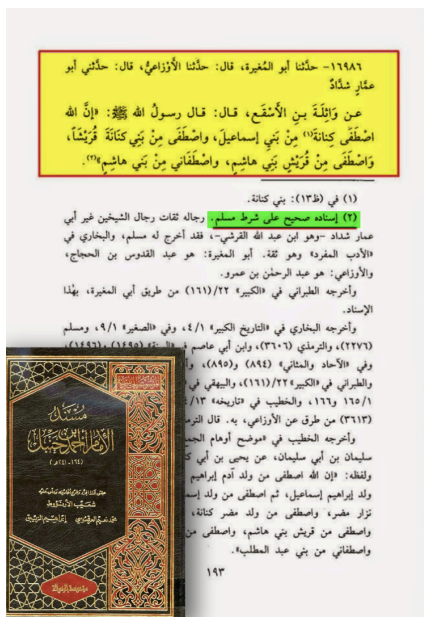 ١٦٩٨٦- حدَّثنا أبو المُغيرة، قال: حدَّثنا الأَوْزاعيُّ، قال: حدَّثني أبو
عمَّارٍ شدَّادٌ
عـن وَاثِلَـةَ بـنِ الأَسْقَـعِ، قـالَ: قـال رسـولُ الله ﷺ: «إنَّ الله
اصْطَفَى كِنانَةَ(١) مِنْ بَنِي إسماعيلَ، واصْطَفَى مِنْ بَنِي كِنَانَةَ قُرَيْشَاً،
وَاصْطَفَى مِنْ قُرَيْشٍ بَنِي هاشِمٍ، واصْطَفَاني مِنْ بَنِي هاشِمٍ»(٢).
(١) في (ظ١٣): بني كنانة.
(٢) إسناده صحيح على شرط مسلم. رجاله ثقات رجال الشيخين غير أبي
عمار شداد -وهو ابن عبد الله القرشي-، فقد أخرج له مسلم، والبخاري في
«الأدب المفرد» وهو ثقة. أبو المغيرة: هو عبد القدوس بن الحجاج،
والأوزاعي: هو عبد الرحمٰن بن عمرو.
وأخرجه الطبراني في «الكبير» ٢٢/(١٦١) من طريق أبي المغيرة، بهٰذا
الإسناد.
وأخرجه البخاري في «التاريخ الكبير» ٤/١، وفي «الصغير» ٩/١، ومسلم
(٢٢٧٦)، والترمذي (٣٦٠٦)، وابن أبي عاصم في «السنة» (١٤٩٥) و(١٤٩٦)،
وفي «الآحاد والمثاني» (٨٩٤) و(٨٩٥)،
والطبراني في «الكبير» ٢٢/(١٦١)، والبيهقي في
١٦٥/١ و١٦٦، والخطيب في «تاريخه»
(٣٦١٣) من طرق عن الأوزاعي، به. قال
وأخرجه الخطيب في «موضح أوهام
سليمان بن أبي سليمان، عن يحيى بن أبي
ولفظه: «إن الله اصطفى من ولد آدم إبراهيم
ولد إبراهيم إسماعيل، ثم اصطفى من ولد
نزار مضر، واصطفى من ولد مضر كنانة،
واصطفى من قريش بني هاشم، واصطفى من
واصطفاني من بني عبد المطلب».
١٩٣
مسند
الإمام أحمد بن حنبل
(١٦٤-٢٤١هـ)
شعيب الأرنؤوط
محمد نعيم العرقسوسي إبراهيم الزيبق
مؤسسة الرسالة